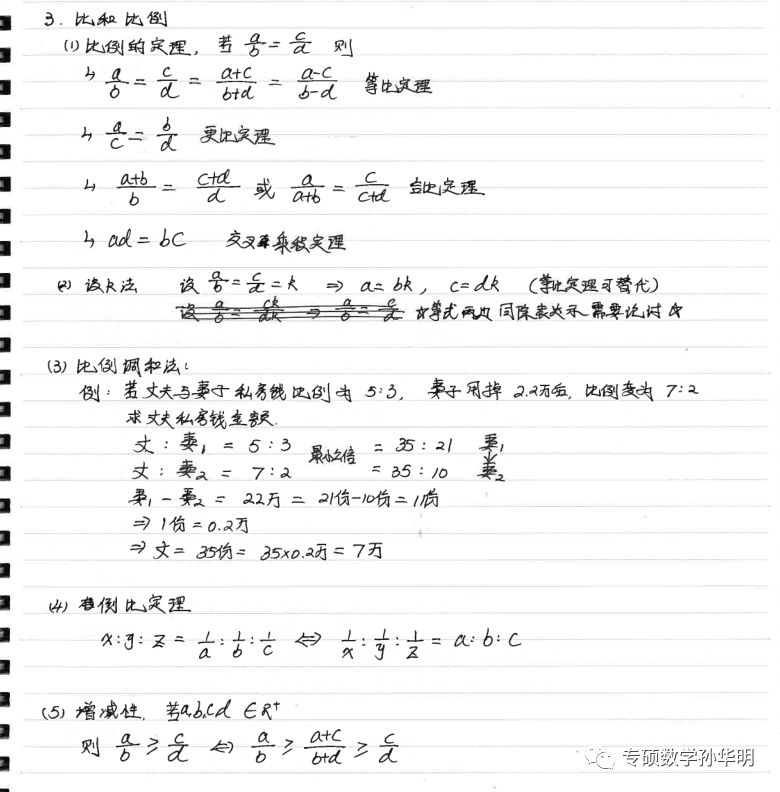 3. 比和比例
(1) 比例的定理, 若 a/b = c/d 则
↳ a/b = c/d = (a+c)/(b+d) = (a-c)/(b-d) 等比定理
↳ a/c = b/d 更比定理
↳ (a+b)/b = (c+d)/d 或 a/(a+b) = c/(c+d) 合比定理
↳ ad = bc 交叉乘积定理
(2) 设k法 设 a/b = c/d = k ⇒ a = bk, c = dk (等比定理可替代)
设 a/b = ck/dk ⇒ a/b = c/d ☆等式两边同除表达示需要讨讨☆
(3) 比例调和法:
例: 若丈夫与妻子私房钱比例为 5:3, 妻子用掉 2.2万后, 比例变为 7:2
求丈夫私房钱金额.
丈 : 妻₁ = 5 : 3 最小公倍 = 35 : 21 妻₁
丈 : 妻₂ = 7 : 2 = 35 : 10 ↓ 妻₂
妻₁ - 妻₂ = 2.2万 = 21份-10份 = 11份
⇒ 1份 = 0.2万
⇒ 丈 = 35份 = 35×0.2万 = 7万
(4) 倒比定理
x:y:z = 1/a : 1/b : 1/c ⇔ 1/x : 1/y : 1/z = a:b:c
(5) 增减性. 若a,b,c,d ∈ R⁺
则 a/b ≥ c/d ⇔ a/b ≥ (a+c)/(b+d) ≥ c/d
专硕数学孙华明